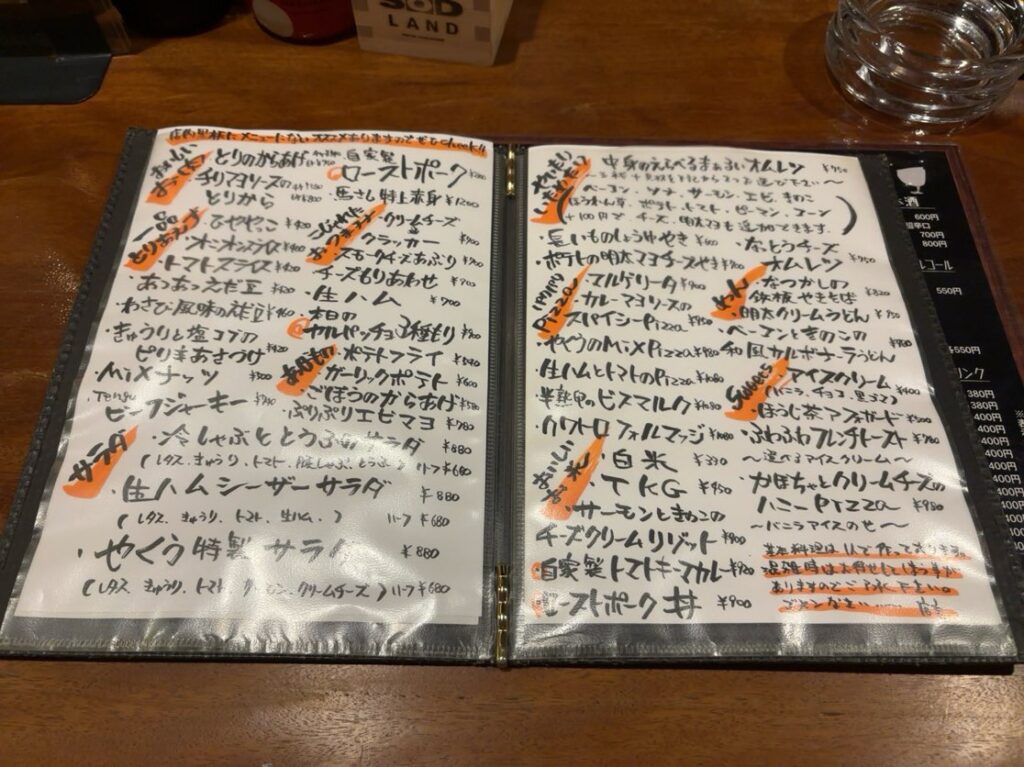 SOD
LAND
店内黒板にメニューにないオススメありますのでぜひcheck!!
おいしい
とりのからあげ
チリマヨソースの
とりから
自家製
ローストポーク
馬さし特上赤身 ¥1200
一品
とりあえず
ひややっこ ¥400
オニオンスライス ¥400
トマトスライス ¥400
あつあつえだ豆
わさび風味のえだ豆
きゅうりと塩コブの
ピリ辛あさつけ ¥420
MiXナッツ ¥500
Tengu
ビーフジャーキー
クリームチーズ
クラッカー ¥700
スモークチーズあぶり ¥700
チーズもりあわせ
生ハム ¥700
本日の
カルパッチョ3種もり
あげもの
ポテトフライ
ガーリックポテト ¥600
ごぼうのからあげ ¥580
ぷりぷりエビマヨ ¥780
サラダ
冷しゃぶととうふのサラダ ¥880
(レタス、きゅうり、トマト、豚しゃぶ、とうふ) ハーフ ¥680
生ハムシーザーサラダ ¥880
(レタス、きゅうり、トマト、生ハム、) ハーフ ¥680
やくう特製サラダ ¥880
(レタス きゅうり、トマト サーモン、クリームチーズ) ハーフ ¥680
中身のえらべるまぁるいオムレツ ¥750
ベーコン・ツナ・サーモン・エビ・きのこ
ほうれん草・ポテト・トマト・ピーマン・コーン
+100円でチーズ、明太マヨも追加できます。
長いものしょうゆやき ¥600
ポテトの明太マヨチーズやき ¥700
なっとうチーズ
オムレツ ¥750
Pizza
マルゲリータ ¥900
カレーマヨソースの
スパイシーPizza
やくうのMiXPizza ¥980
生ハムとトマトのPizza ¥1080
半熟卵のビスマルク
クワトロフォルマッジ
めん
なつかしの
鉄板やきそば ¥820
明太クリームうどん
ベーコンときのこの
和風カルボナーラうどん
Sweets
アイスクリーム
(バニラ、チョコ、黒ゴマ) ¥400
ほうじ茶アフォガード ¥500
ふわふわフレンチトースト
～選べるアイスクリーム～
かぼちゃとクリームチーズの
ハニーPizza ¥980
～バニラアイスのせ～
おいしい
お米
白米
TKG ¥450
サーモンときのこの
チーズクリームリゾット ¥900
自家製トマトキーマカレー
ローストポーク丼 ¥900
基本料理は1人で作っております。
混雑時はお待せしてしまう事が
ありますのでご了承下さい。
ごめんなさい……
酒
600円
700円
800円
550円
550円
リンク
380円
380円
400円
400円
400円
400円
400円